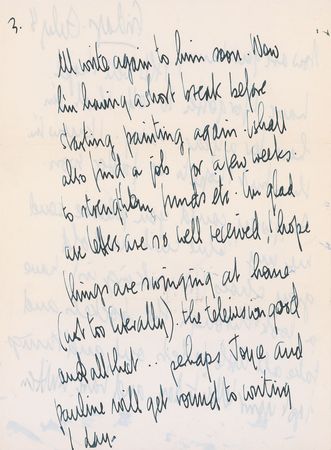 3.
I'll write again to him soon. Now
I'm having a short break before
starting painting again. I shall
also find a job for a few weeks.
to strengthen funds etc. I'm glad
our letters are so well received, I hope
things are swinging at home
(not too literally). the television good
and all that .. perhaps Joyce and
pauline will get round to writing
1 day.